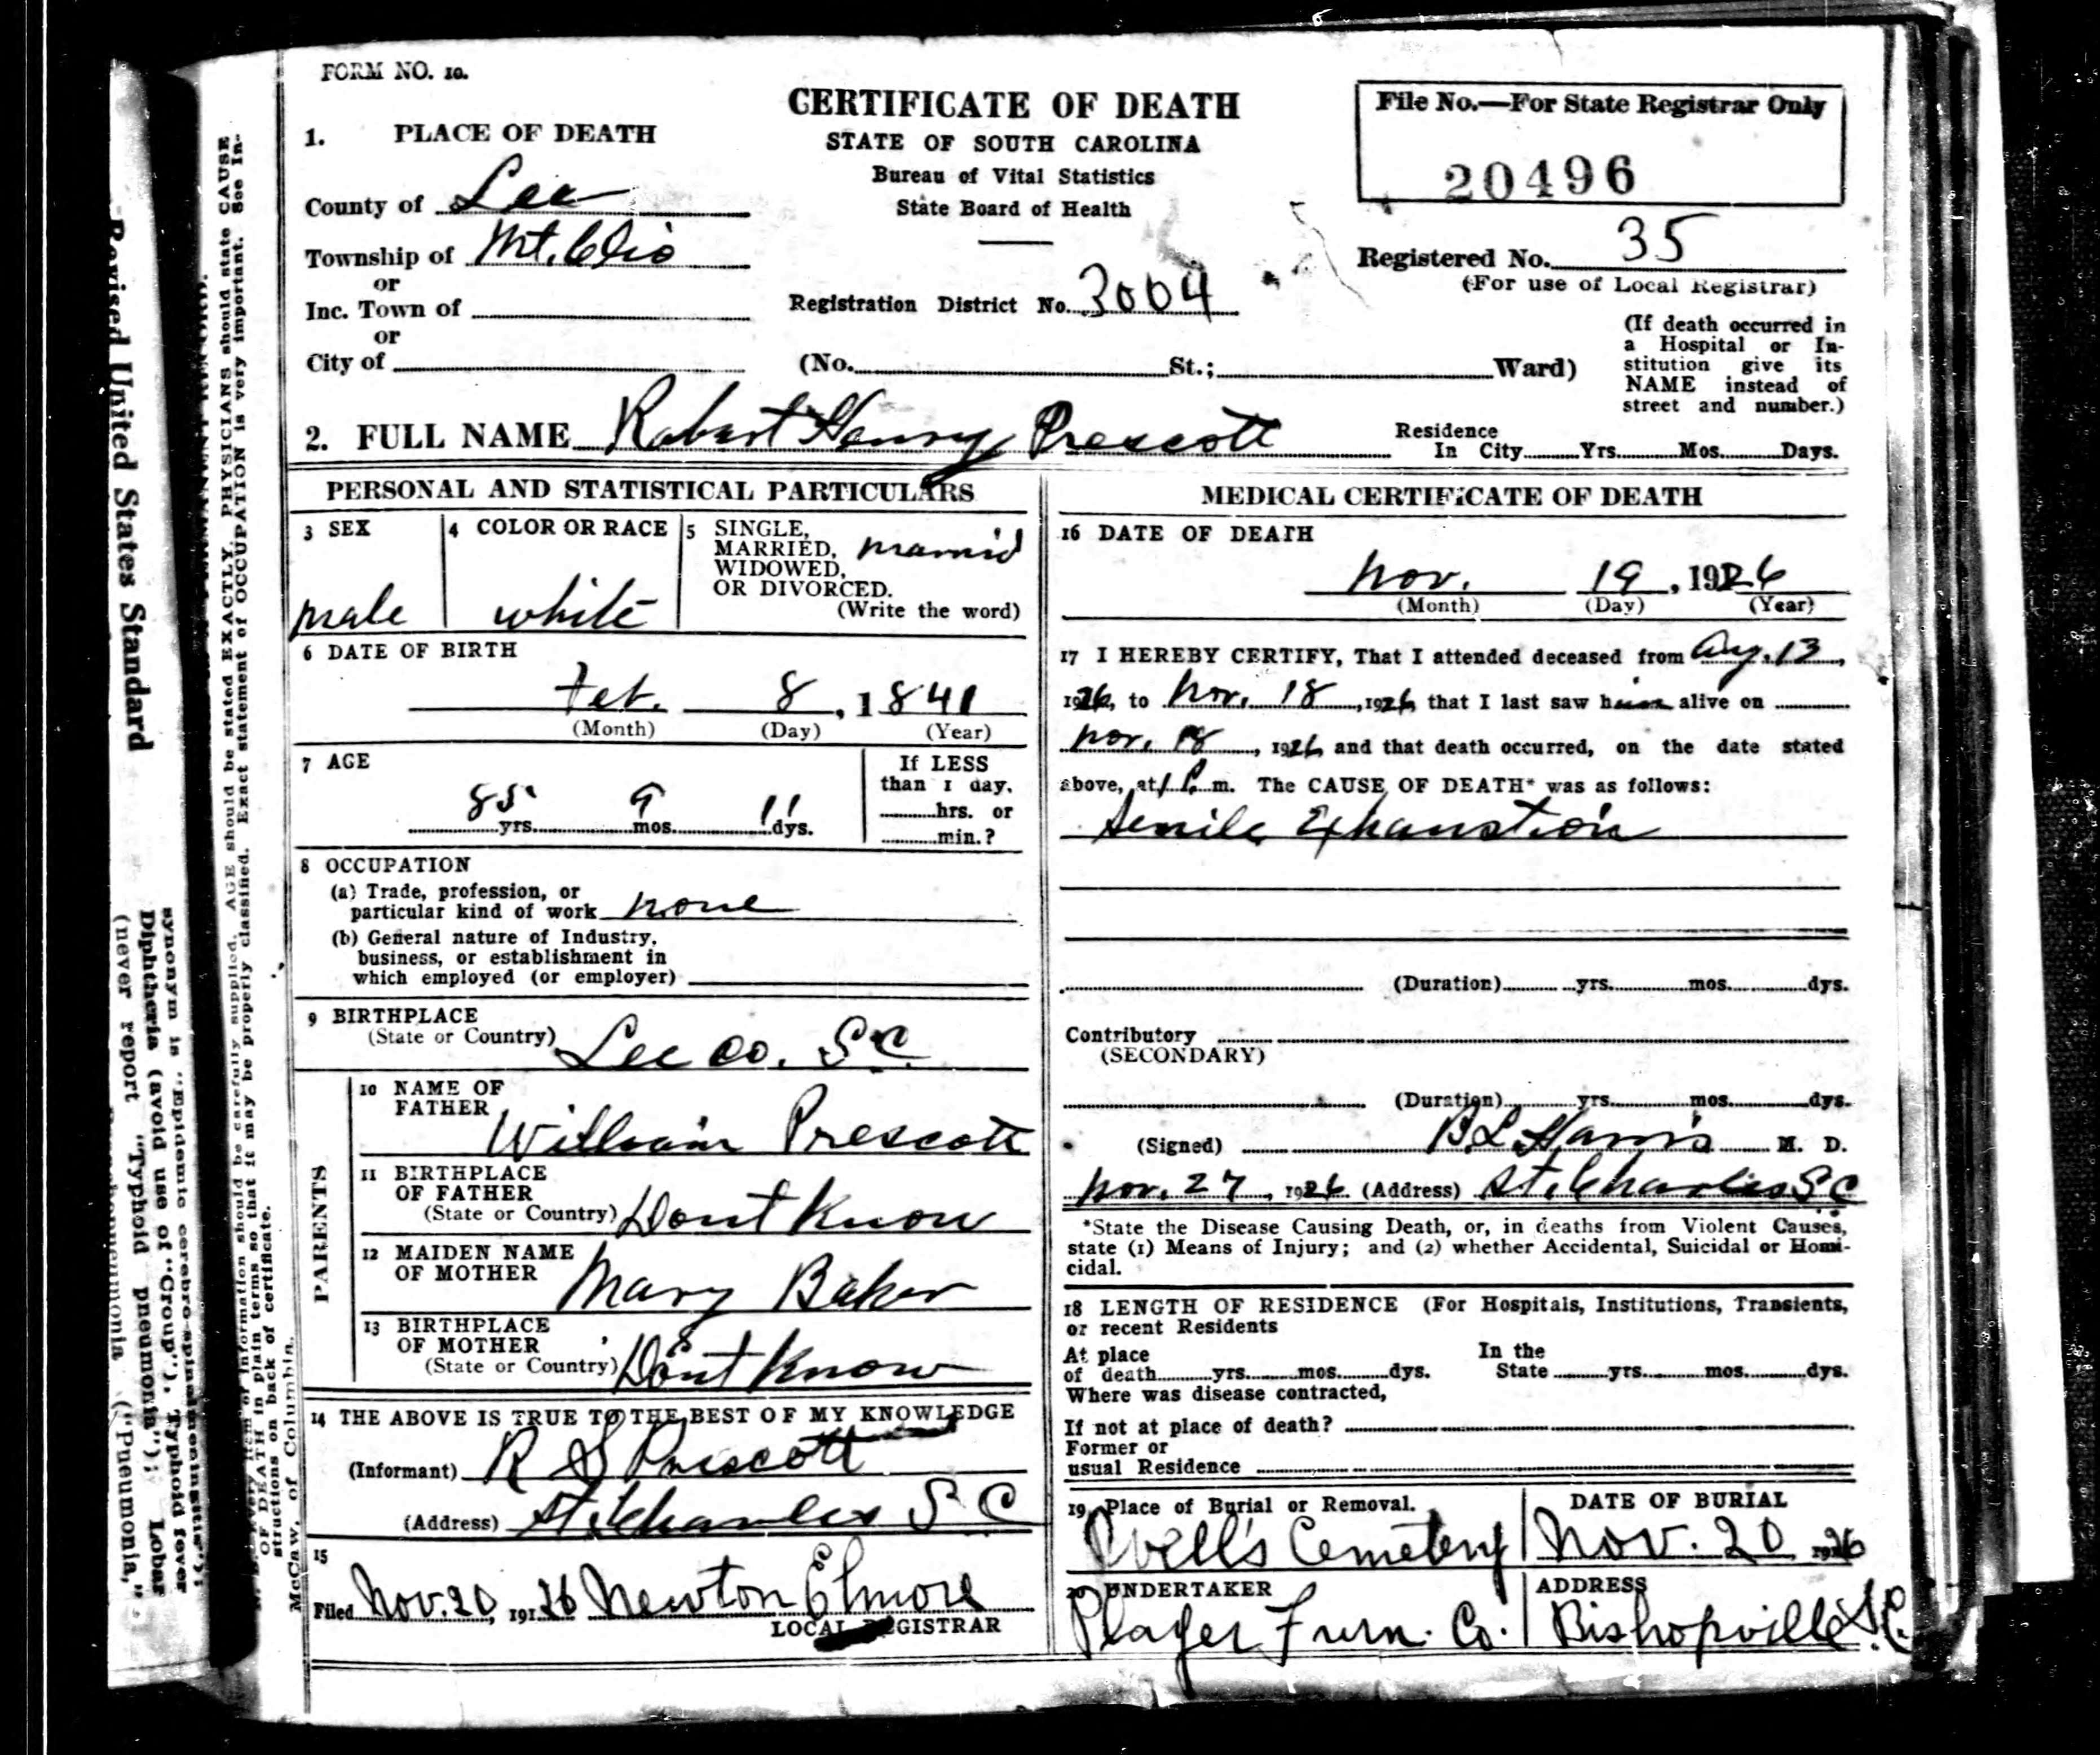 FORM NO. 10.
CERTIFICATE OF DEATH
STATE OF SOUTH CAROLINA
Bureau of Vital Statistics
State Board of Health
File No.—For State Registrar Only
20496
1. PLACE OF DEATH
County of Lee
Township of Mt. Clio
or
Inc. Town of
or
City of
Registration District No. 3004
Registered No. 35
(For use of Local Registrar)
(No. St.; Ward)
(If death occurred in
a Hospital or In-
stitution give its
NAME instead of
street and number.)
2. FULL NAME Robert Henry Prescott
Residence
In City Yrs. Mos. Days.
PERSONAL AND STATISTICAL PARTICULARS
3 SEX
male
4 COLOR OR RACE
white
5 SINGLE,
MARRIED,
WIDOWED,
OR DIVORCED.
(Write the word)
married
6 DATE OF BIRTH
Feb. 8, 1841
(Month) (Day) (Year)
7 AGE
85 yrs. 9 mos. 11 dys.
If LESS
than 1 day,
hrs. or
min.?
8 OCCUPATION
(a) Trade, profession, or
particular kind of work none
(b) General nature of Industry,
business, or establishment in
which employed (or employer)
9 BIRTHPLACE
(State or Country) Lee Co. S C
PARENTS
10 NAME OF
FATHER
William Prescott
11 BIRTHPLACE
OF FATHER
(State or Country) Dont Know
12 MAIDEN NAME
OF MOTHER Mary Baker
13 BIRTHPLACE
OF MOTHER
(State or Country) Dont Know
14 THE ABOVE IS TRUE TO THE BEST OF MY KNOWLEDGE
(Informant) R S Prescott
(Address) St. Charles S C
15
Filed Nov. 20, 1926 Newton Elmore
LOCAL REGISTRAR
MEDICAL CERTIFICATE OF DEATH
16 DATE OF DEATH
Nov. 19, 1926
(Month) (Day) (Year)
17 I HEREBY CERTIFY, That I attended deceased from Aug. 13,
1926, to Nov. 18, 1926, that I last saw him alive on
Nov. 18, 1926 and that death occurred, on the date stated
above, at 1 P. m. The CAUSE OF DEATH* was as follows:
Senile Exhaustion
(Duration) yrs. mos. dys.
Contributory
(SECONDARY)
(Duration) yrs. mos. dys.
(Signed) B L Harris M. D.
Nov. 27, 1926. (Address) St. Charles S C
*State the Disease Causing Death, or, in deaths from Violent Causes,
state (1) Means of Injury; and (2) whether Accidental, Suicidal or Homi-
cidal.
18 LENGTH OF RESIDENCE (For Hospitals, Institutions, Transients,
or recent Residents
At place
of death yrs. mos. dys.
In the
State yrs. mos. dys.
Where was disease contracted,
If not at place of death?
Former or
usual Residence
19 Place of Burial or Removal.
Cemetery
DATE OF BURIAL
Nov. 20 1926
20 UNDERTAKER
Player Furn. Co.
ADDRESS
Bishopville S.C.
Revised United States Standard
synonym is "Epidemic cerebro-spinal meningitis");
Diphtheria (avoid use of "Croup"); Typhoid fever
(never report "Typhoid pneumonia"); Lobar
("Pneumonia,"
information should be carefully supplied. AGE should be stated EXACTLY. PHYSICIANS should state CAUSE
OF DEATH in plain terms so that it may be properly classified. Exact statement of OCCUPATION is very important. See In-
structions on back of certificate.
McCaw, of Columbia.